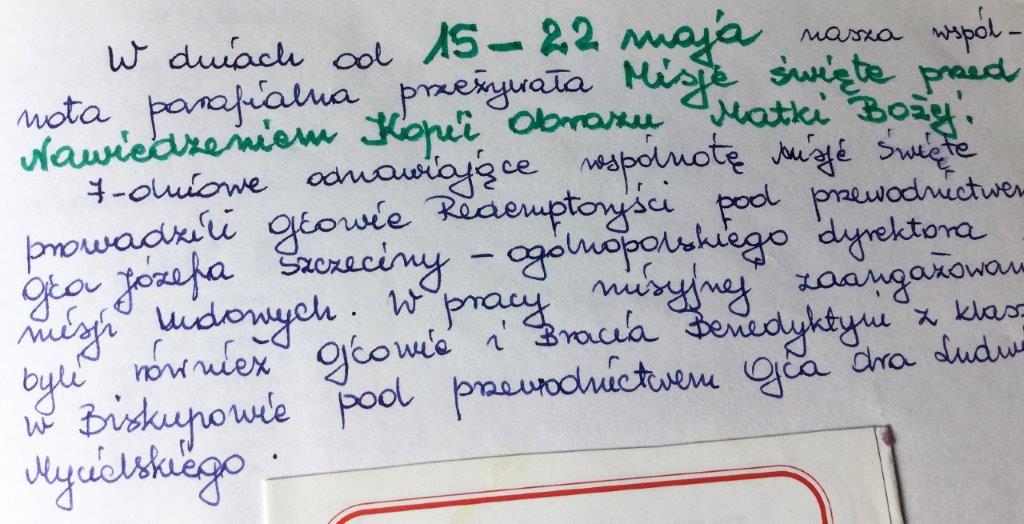 W dniach od 15 – 22 maja nasza wspól-
nota parafialna przeżywała Misje święte przed
Nawiedzeniem Kopii Obrazu Matki Bożej.
7-dniowe odnawiające wspólnotę Misje Święte
prowadzili Ojcowie Redemptoryści pod przewodnictwem
Ojca Józefa Szczeciny – ogólnopolskiego dyrektora
misji ludowych. W pracy misyjnej zaangażowani
byli również Ojcowie i Bracia Benedyktyni z klasz
w Biskupowie pod przewodnictwem Ojca dra Ludwi
Mycielskiego.